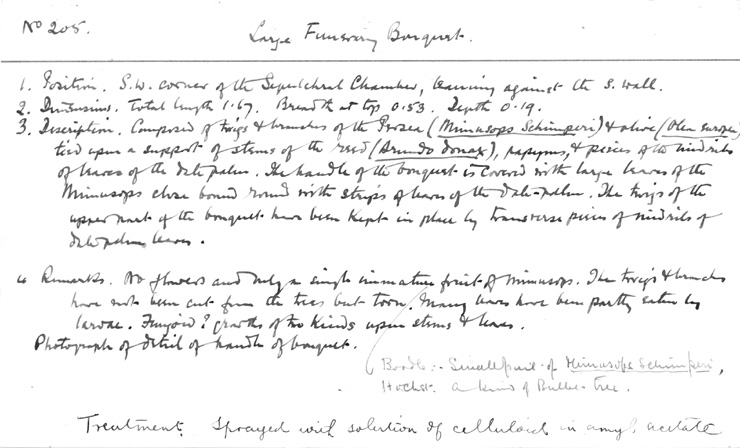 No 205.
Large Funerary Bouquet.
1. Position. S.W. corner of the Sepulchral Chamber, leaning against the S. wall.
2. Dimensions. Total length 1.67. Breadth at top 0.53. Depth 0.19.
3. Description. Composed of twigs & branches of the Persea (Mimusops Schimperi) & olive (Olea europæa)
tied upon a support of stems of the reed (Arundo donax), papyrus, & pieces of the midribs
of leaves of the date palm. The handle of the bouquet is covered with large leaves of the
Mimusops close bound round with strips of leaves of the date-palm. The twigs of the
upper part of the bouquet have been kept in place by transverse pieces of midribs of
date-palm leaves.
4 Remarks. No flowers and only a single immature fruit of Mimusops. The twigs & branches
have not been cut from the trees but torn. Many leaves have been partly eaten by
larvae. Fungoid? growths of two kinds upon stems & leaves.
Photograph of detail of handle of bouquet.
Boodle:- Small fruit of Mimusops Schimperi,
Hochst. a kind of Bullie-tree.
Treatment. Sprayed with solution of celluloid in amyl acetate